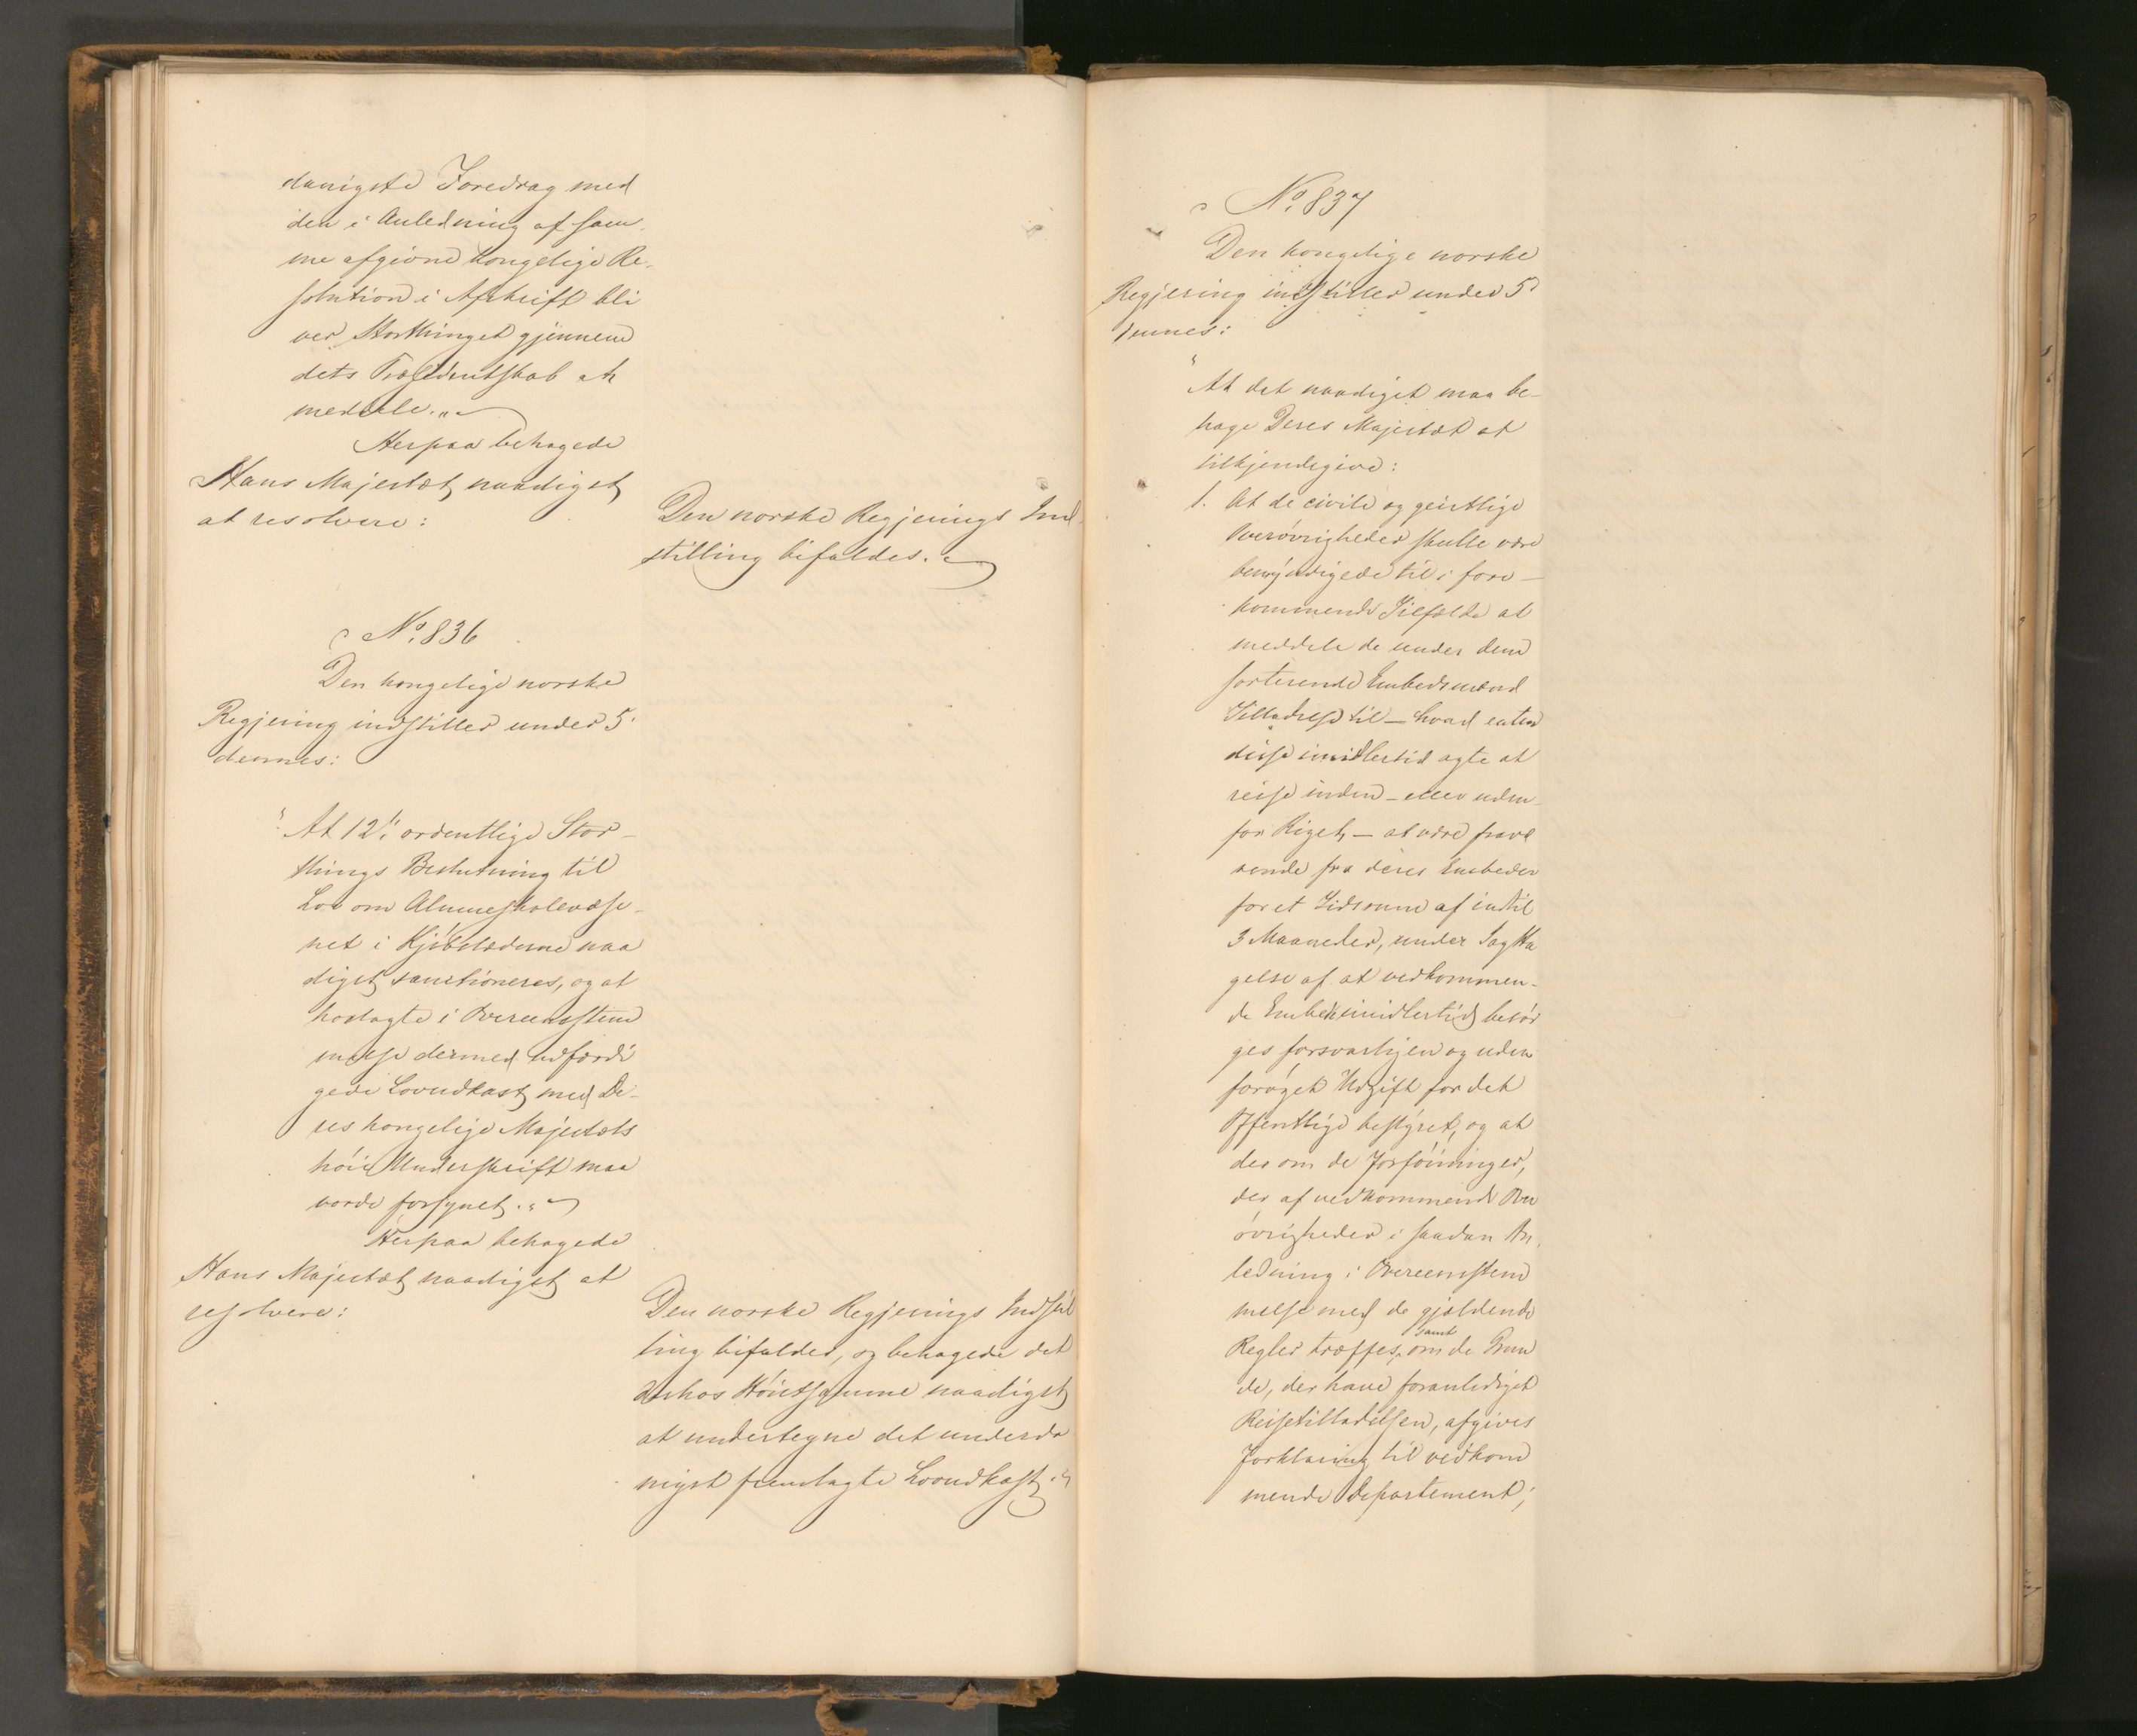 danigste Foredrag med
den i Anledning af sam-
me afgivne kongelige Re-
solution i Afskrift bli
ver Storthinget gjennem
dets Præsidentskab at
meddele."
Herpaa behagede
Hans Majestæt naadigst
at resolvere:
Den norske Regjerings Ind-
stilling bifaldes.
No. 836
Den kongelige norske
Regjering indstiller under 5.
dennes:
"At 12te ordentlige Stor-
things Beslutning til
Lov om Almueskolevæse-
net i Kjøbstæderne naa
digst sanctioneres, og at
hoslagte i Overeensstem
melse dermed udfærdi
gede Lovudkast med De-
res kongelige Majestæts
høie Underskrift maa
vorde forsynet."
Herpaa behagede
Hans Majestæt naadigst at
resolvere:
Den norske Regjerings Indstil
ling bifaldes, og behagede det
derhos Høistsamme naadigst
at undertegne det underda
nigst fremlagte Lovudkast.
No. 837
Den kongelige norske
Regjering indstiller under 5
dennes:
"At det naadigst maa be-
hage Deres Majestæt at
tilkjendegive:
1. At de civile og geistlige
Overøvrigheder skulle være
bemyndigede til i fore-
kommende Tilfælde at
meddele de under dem
sorterende Embedsmænd
Tilladelse til - hvad enten
disse imidlertid agte at
reise inden- eller uden-
for Riget, - at være fravæ
rende fra deres Embeder
for et Tidsrum af indtil
3 Maaneder, under Iagtta
gelse af at vedkommen-
de Embede imidlertid besør
ges forsvarligen og uden
forøget Udgift for det
Offentlige bestyret, og at
der om de Forføininger,
der af vedkommende Over
øvrigheder i saadan An-
ledning i Overeensstem
melse med de gjældende
Regler træffes, samt om de Grun
de, der have foranlediget
Reisetilladelsen, afgives
Forklaring til vedkom
mende Departement;